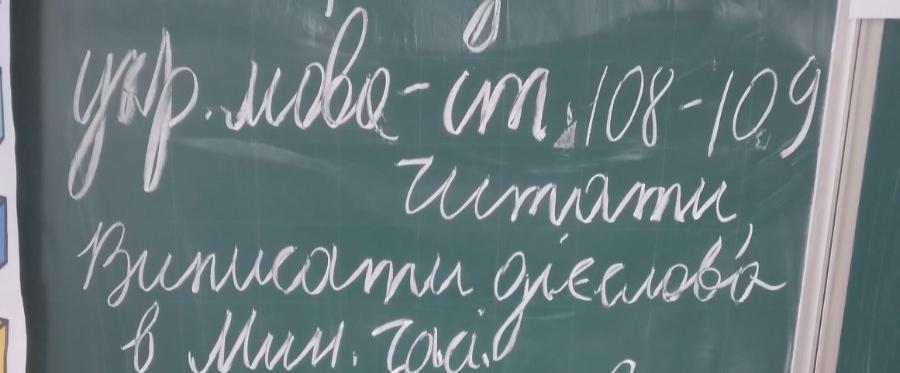 укр. мова - ст. 108-109
Читати
Виписати дієслова
в мин. часі.